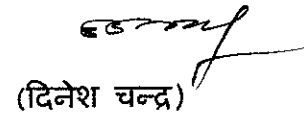 (दिनेश चन्द्र)